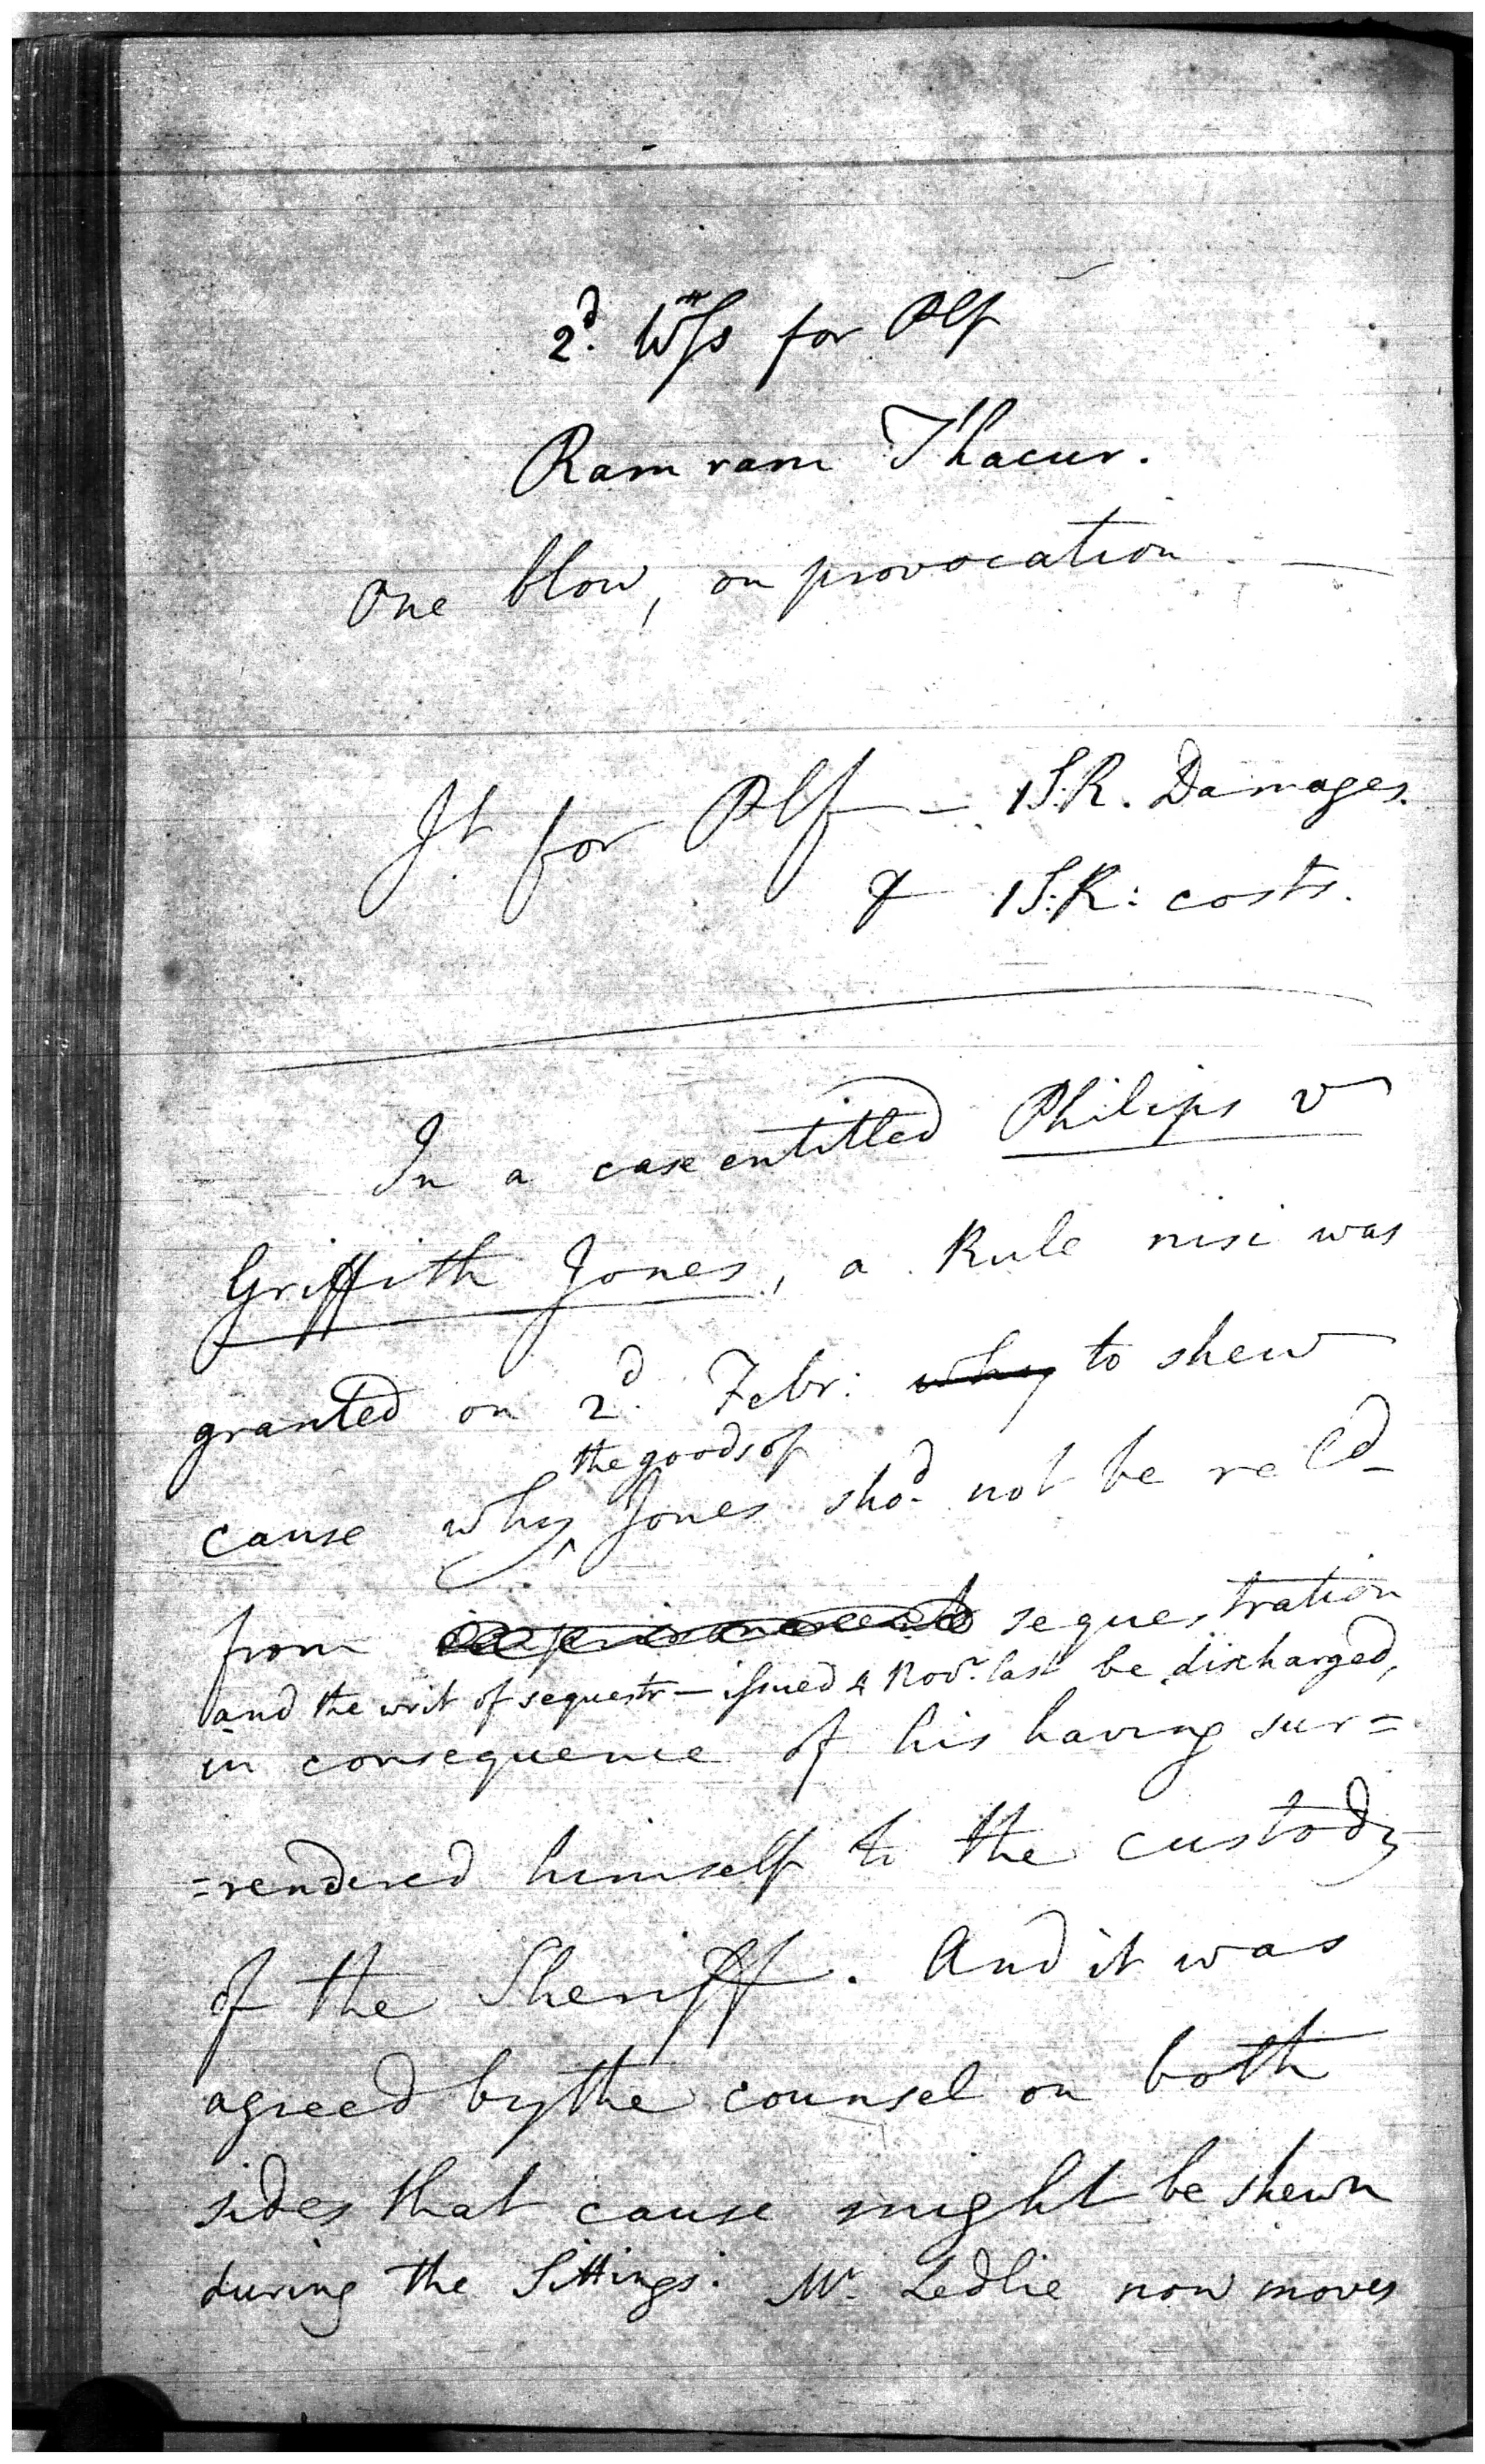 2d. Wss for Plf
Ramram Thacur.
One blow, on provocation. —
Jt. for Plf — 1 S.R. Damages.
& 1 S:R: costs.
In a case entitled Philips v
Griffith Jones, a Rule nisi was
granted on 2d. Febr: why to shew
the goods of
cause why ^ Jones shod. not be reld
from imprisonment sequestration
and the writ of sequestr— issued 4 Novr. last be discharged,
in consequence of his having sur=
=rendered himself to the custody
of the Sheriff. And it was
agreed by the counsel on both
sides that cause might be shewn
during the Sittings. Mr. Ledlie now moves